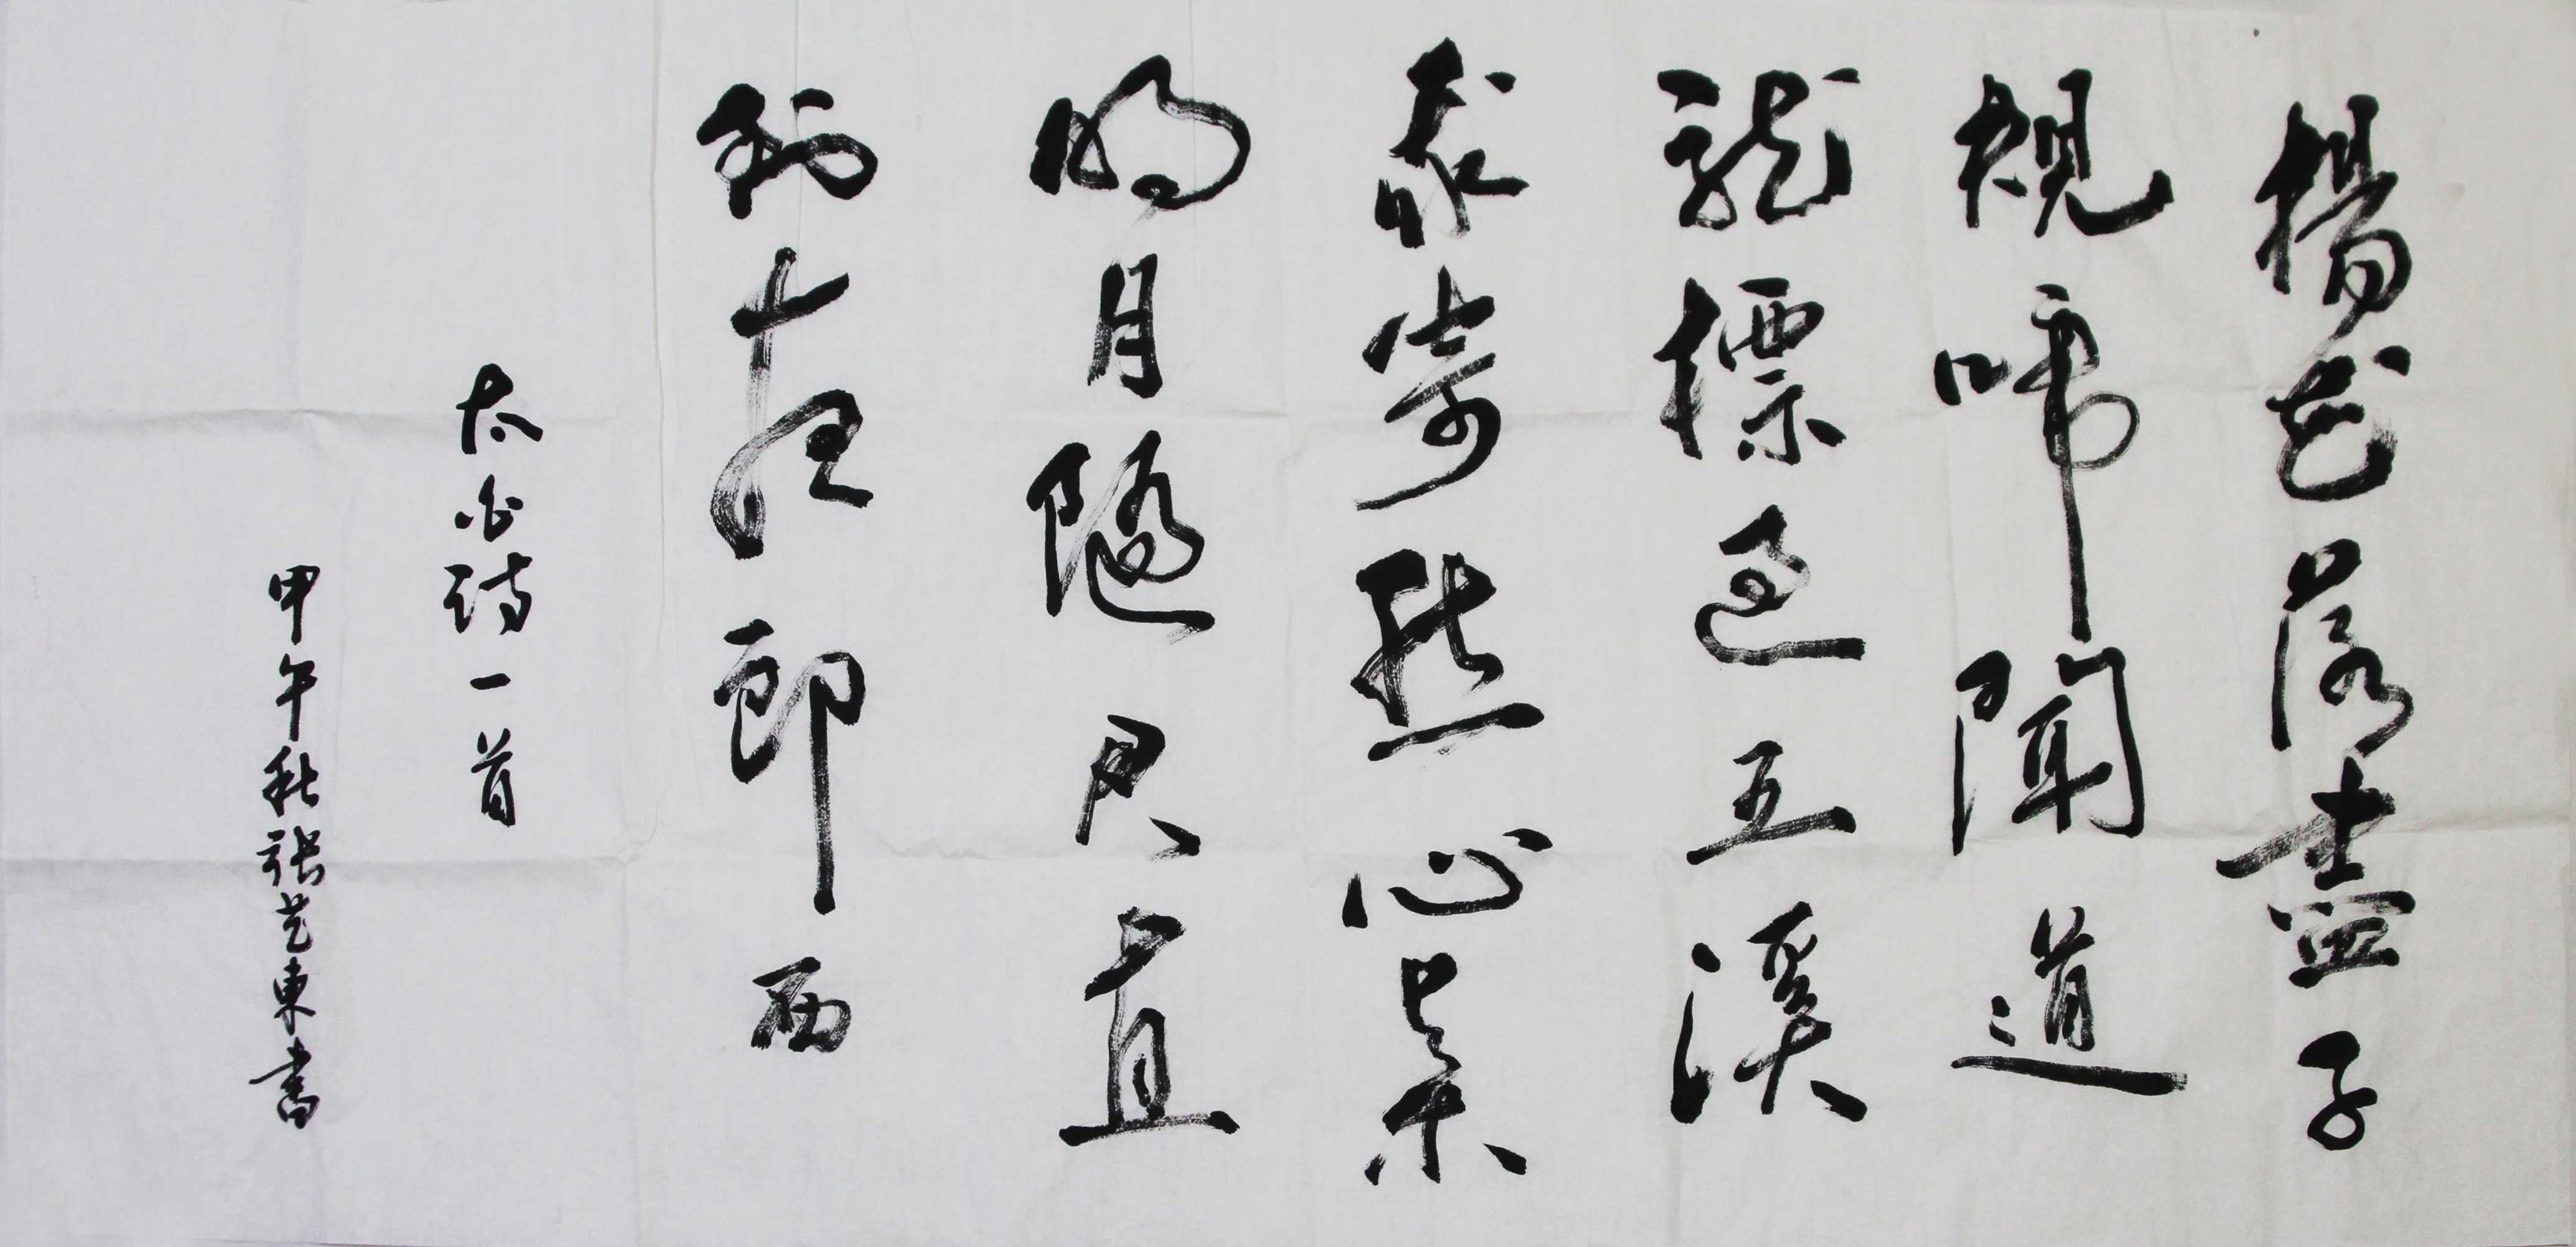 楊花落盡子
規啼聞道
龍標過五溪
我寄愁心與
明月隨君直
到夜郎西
太白詩一首
甲午秋張艺東書